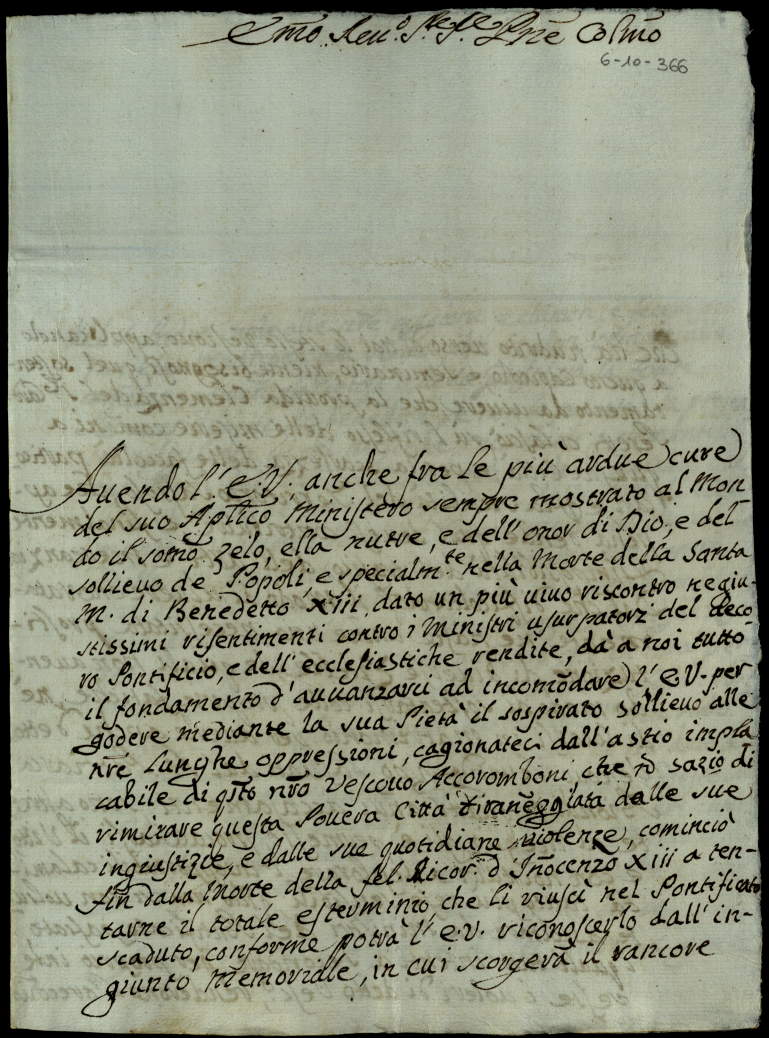 Emo Reuo. Sre. Sre. Pne Colmo
6-10-366
Auendo l'E.V. anche fra le più ardue cure
del suo Aplico Ministero sempre mostrato al Mon
do il somo zelo, ella nutre, e dell'onor di Dio, e del
sollieuo de' Popoli, e specialmte. nella Morte della Santa
M. di Benedetto XIII dato un più uiuo riscontro ne giu-
stissimi risentimenti contro i Ministri usurpatori del deco
ro Pontificio, e dell'ecclesiastiche rendite, dà a noi tutto
il fondamento d'auuanzarci ad incomodare l'E.V. per
godere mediante la sua Pietà il sospirato sollieuo alle
nre lunghe oppressioni, cagionateci dall'astio impla
cabile di qsto nro Vescouo Accoromboni, che no sazio di
rimirare questa Pouera Città tiraneggiata dalle sue
ingiustizie, e dalle sue quotidiane uiolenze, cominciò
fin dalla Morte della fel. Ricor. d'Inocenzo XIII a ten-
tarne il totale esterminio, che li riuscì nel Pontificato
scaduto, conforme potrà l'E.V. riconoscerlo dall'in-
giunto Memoriale, in cui scorgerà il rancore